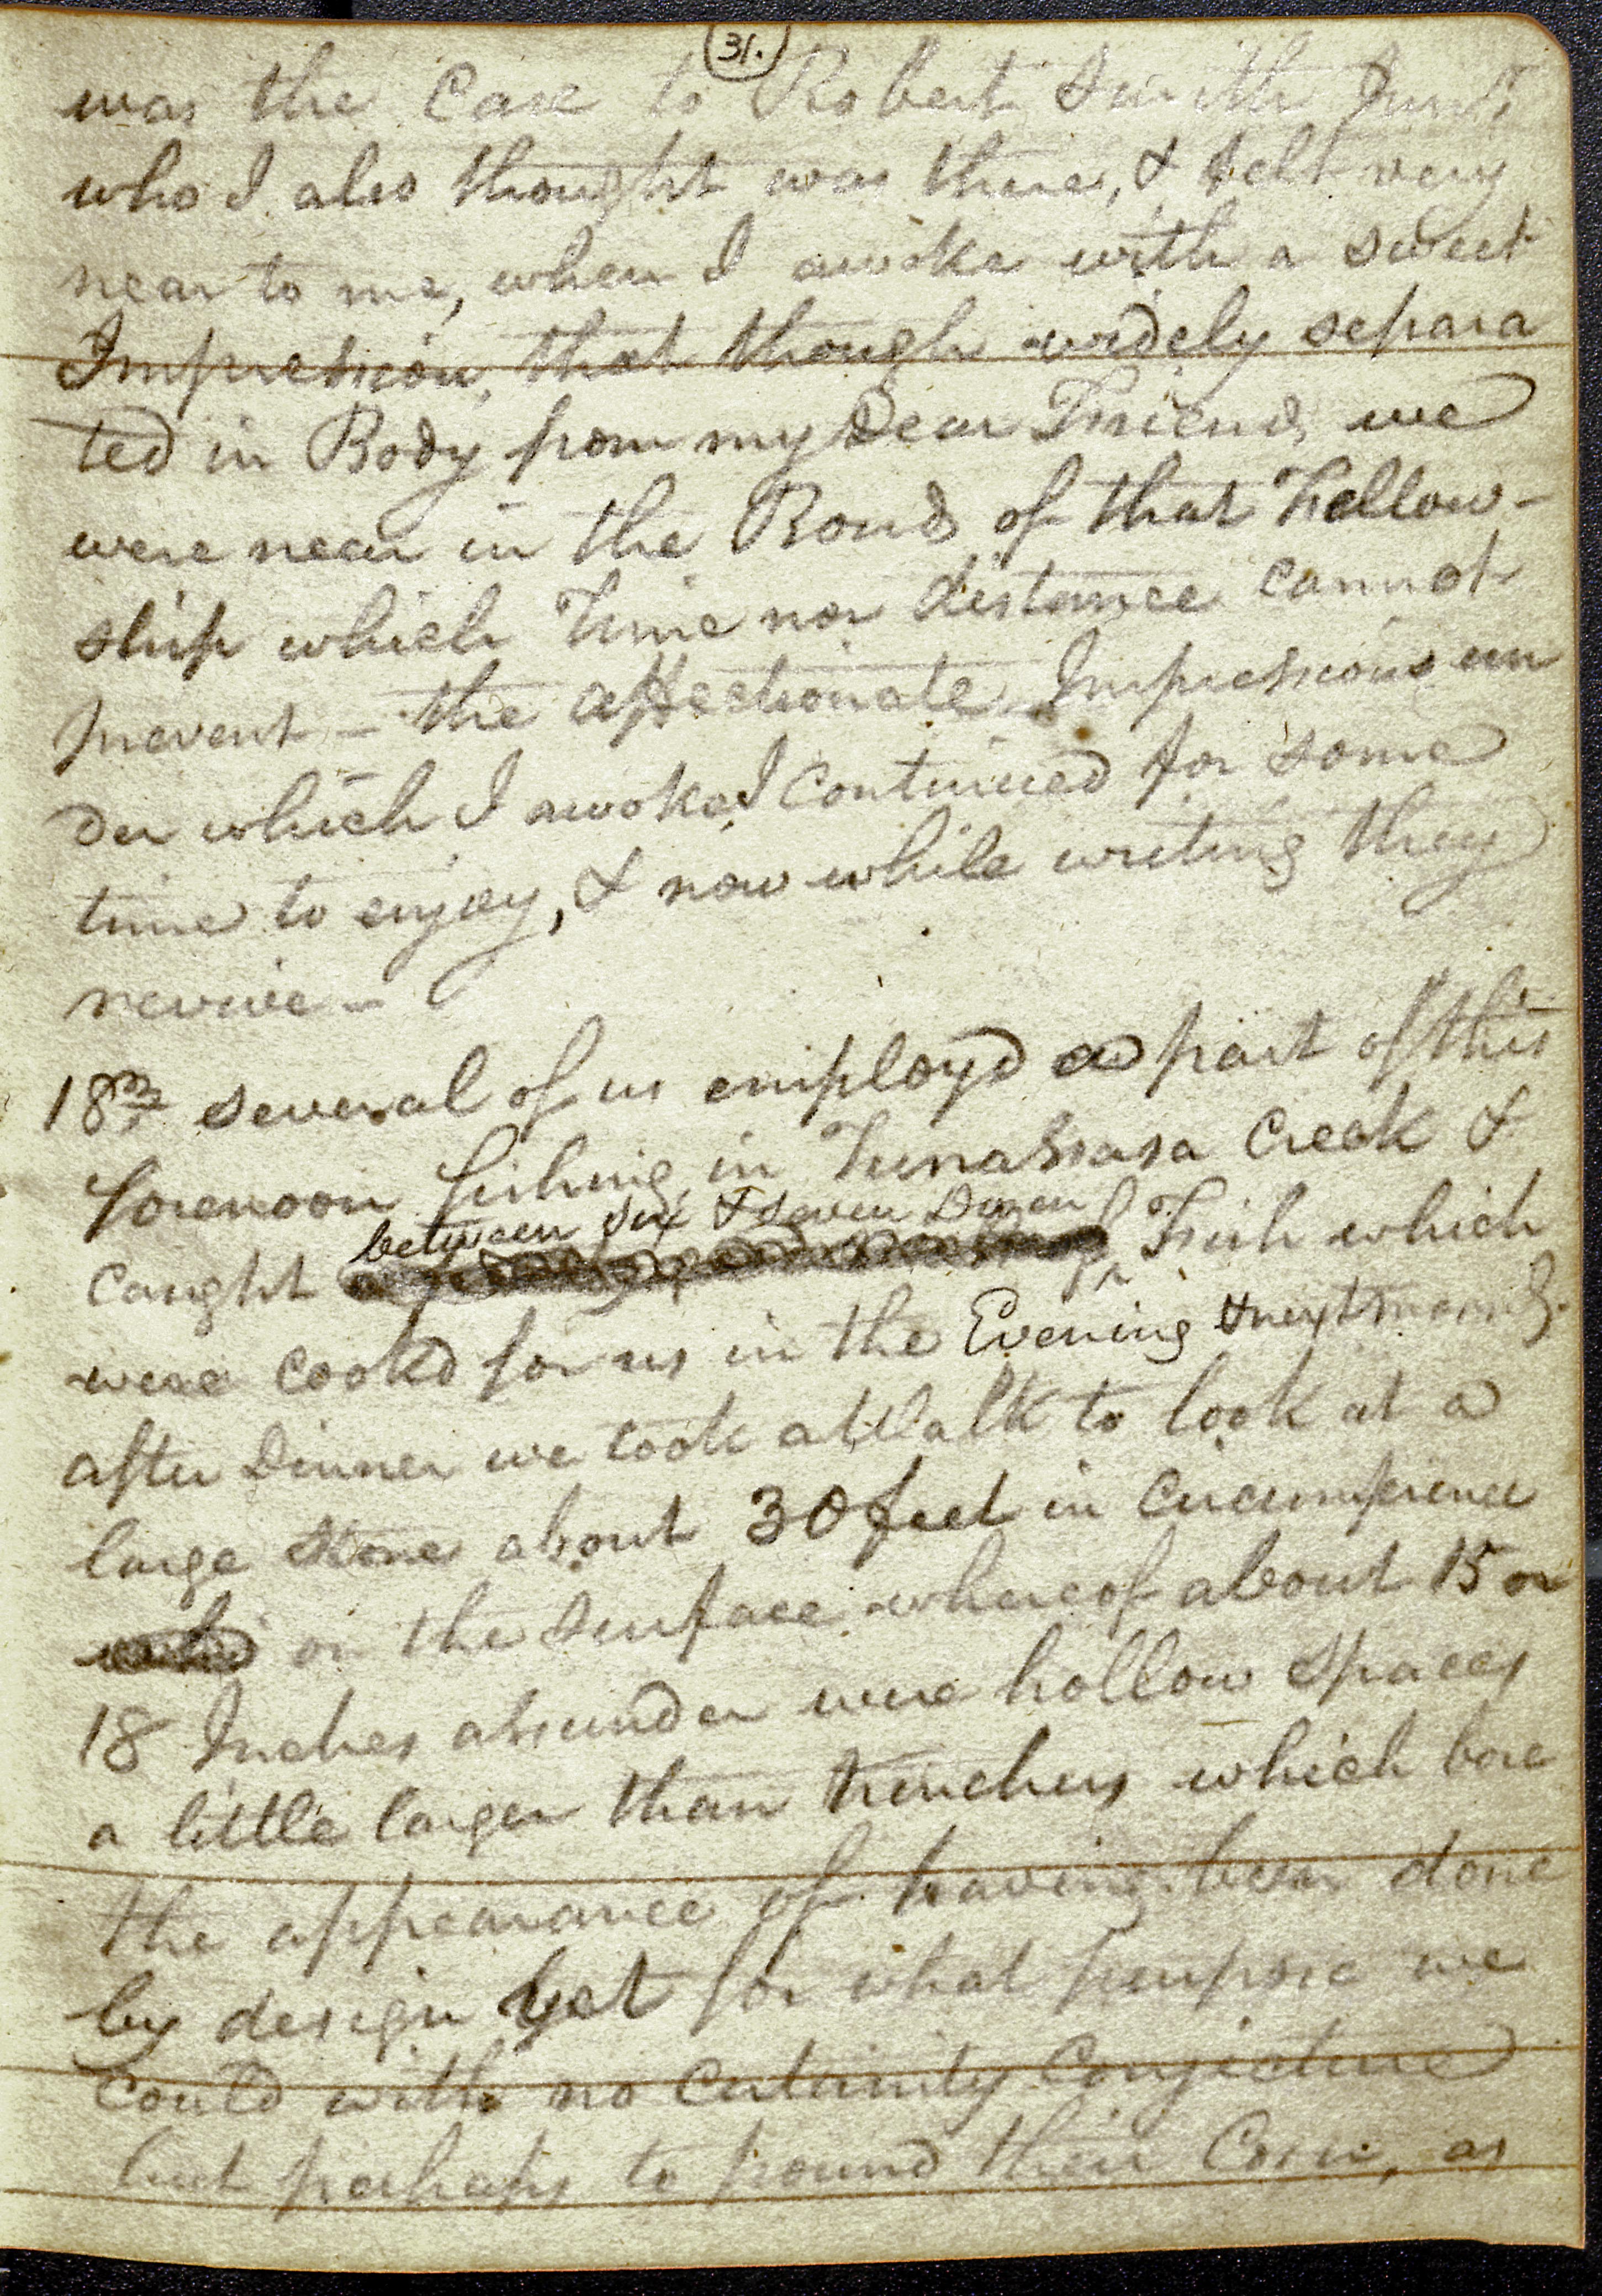 31.
was the Case to Robert Smith Junr,
who I also thought was there, & felt very
near to me, when I awoke with a sweet
Impression, that though widely separa
ted in Body from my Dear Friends we
were near in the Bonds of that Fellow-
ship which Time nor distance cannot
prevent – the affectionate Impressions un
der which I awoke I Continued for some
time to enjoy, & now while writing they
revive –
18th several of us employd a part of this
forenoon fishing in Tunassasa Creek &
between six & seven Dozen
Caught Fish which
were cooked for us in the Evening & next morng.
after Dinner we took a Walk to look at a
large stone about 30 feet in Circumference
on the surface whereof about 15 or
18 Inches assunder were hollow spaces
a little larger than trenchers which bore
the appearance of having been done
by design yet for what purpose we
could with no certainty Conjecture
but perhaps to pound their Corn, as